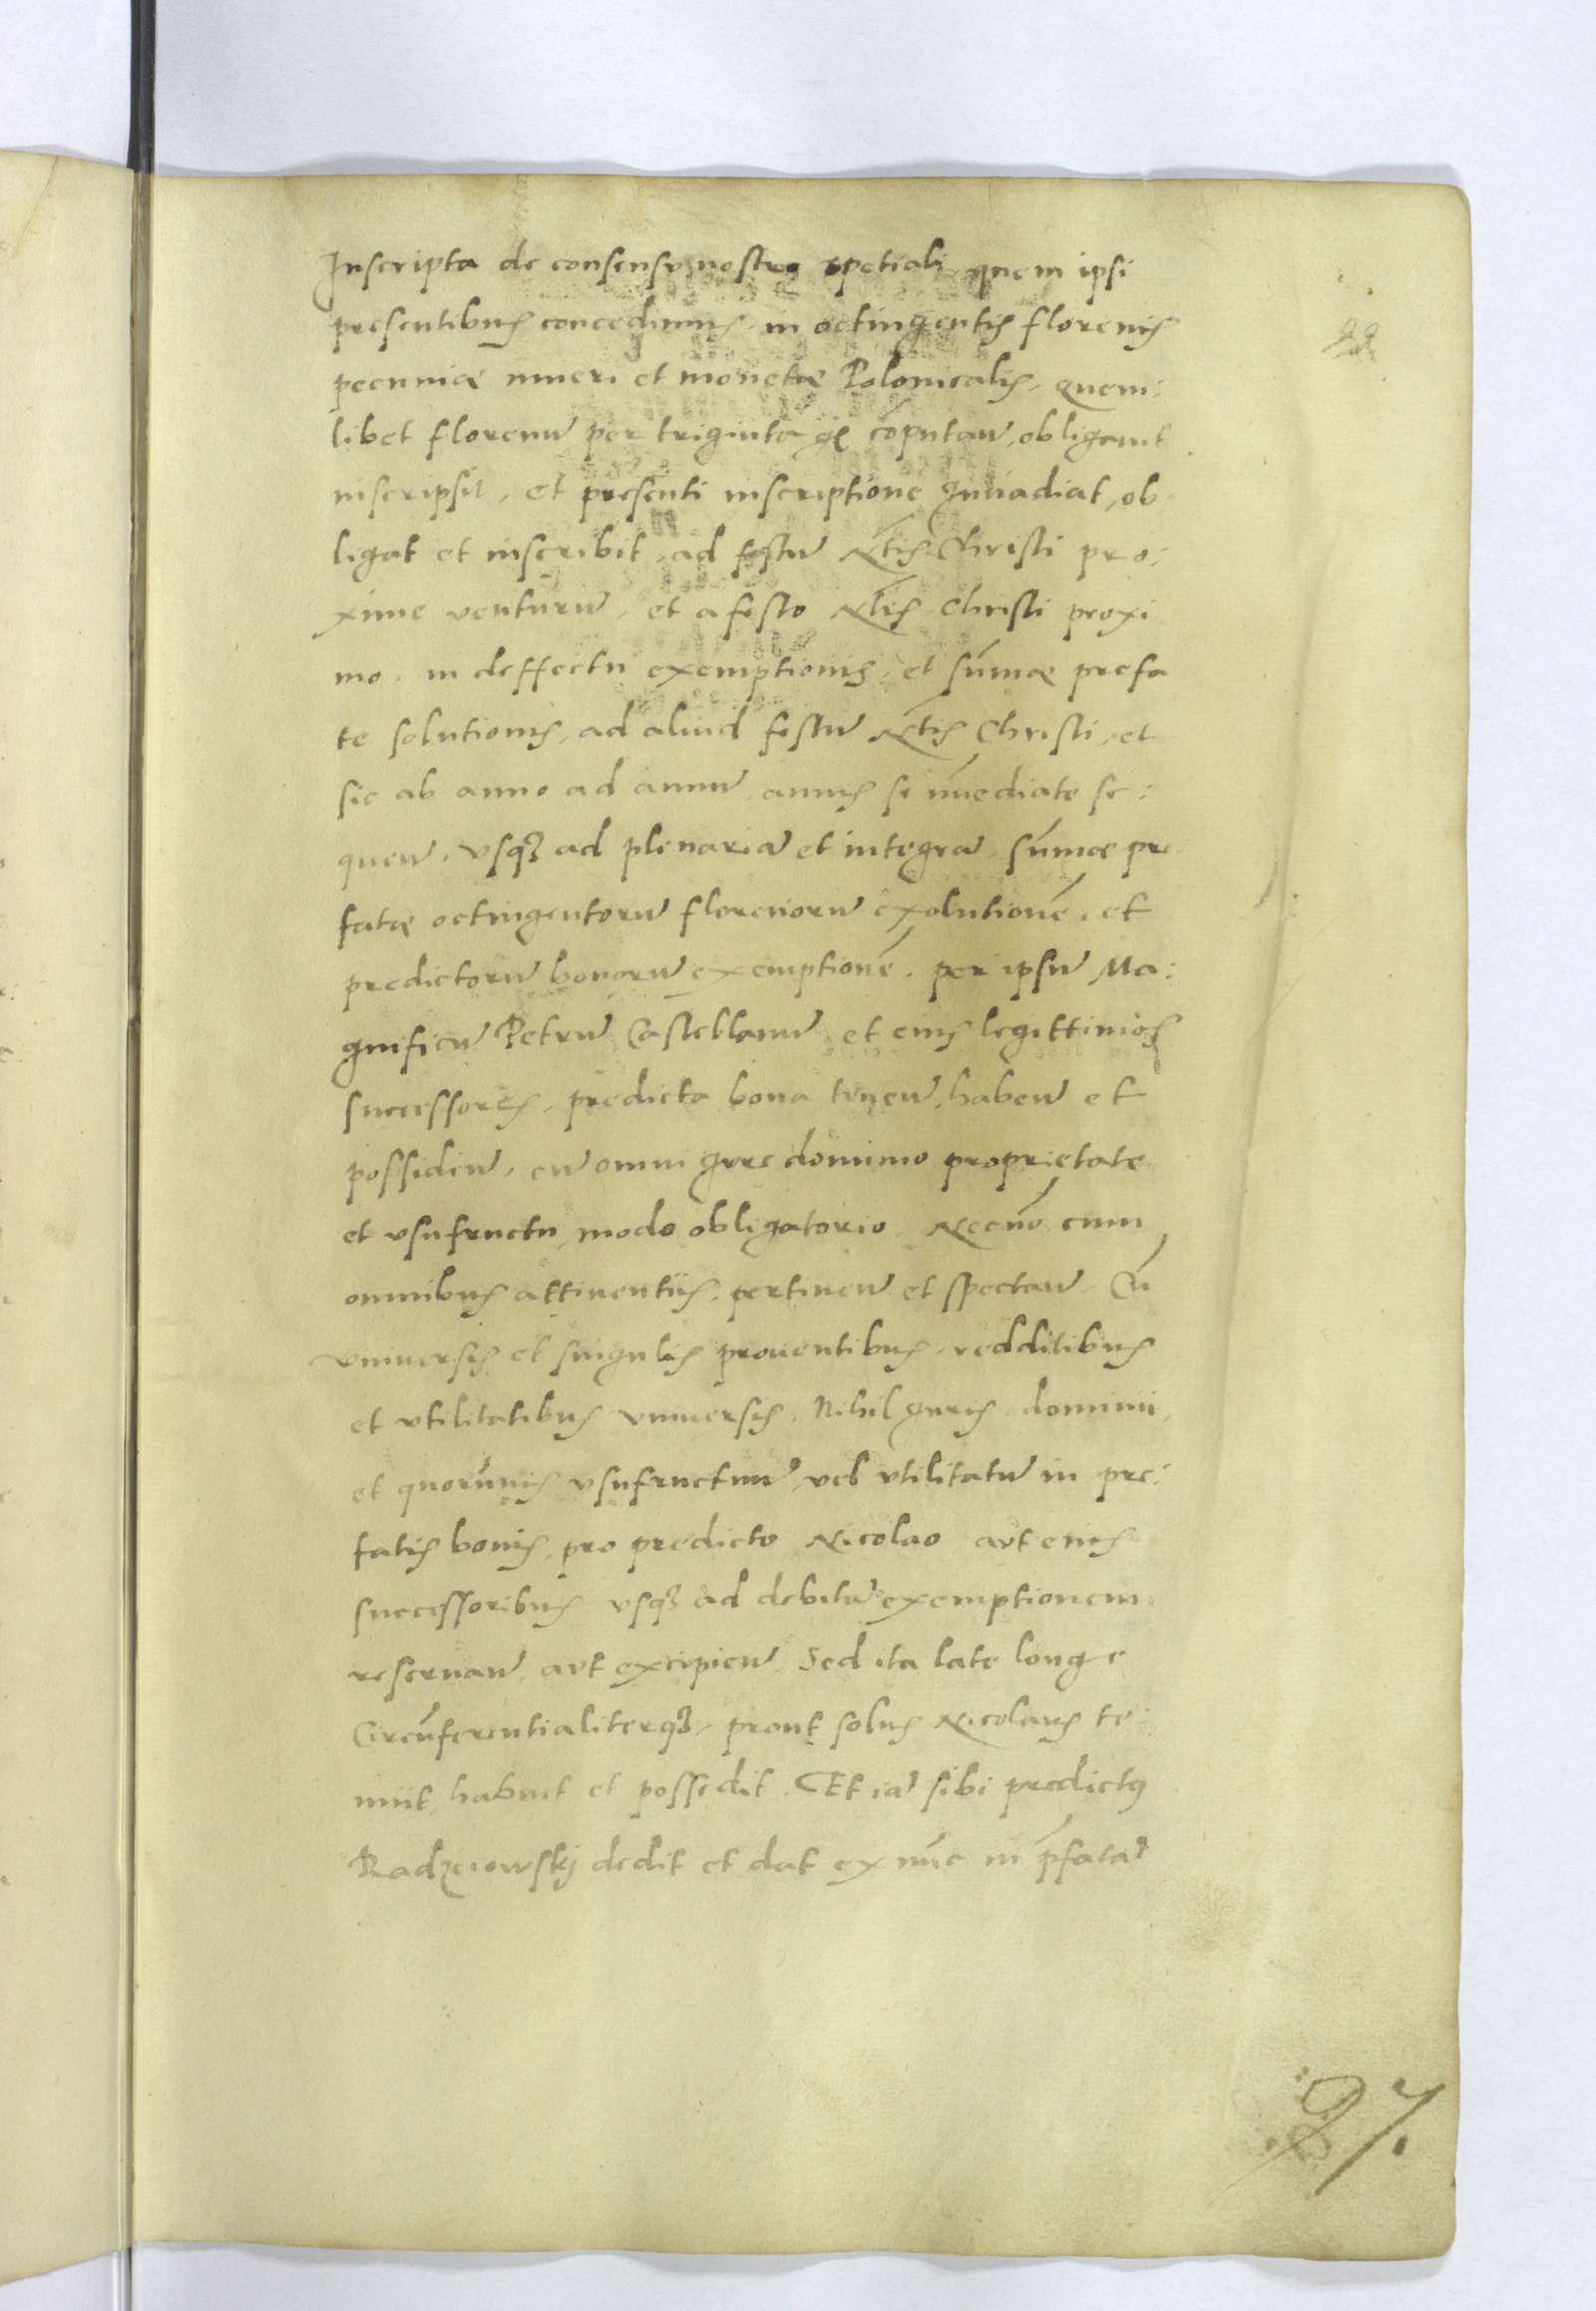 Inscripta de consensu nostro spetiali quem ipsi
presentibus concedimus, in octingentis florenis
pecuniæ nūeri et monetæ Polonicalis, quem:
libet florenū per triginta gͬ cōputan̄, obligavit
inscripsit, et presenti inscriptione Inuadiat, ob
ligat et inscribit, ad festū Nt̄is Christi pro:
xime venturū, et a festo Nt̄is Christi proxi
mo, in deffectu exemptionis, et sūmæ prefa
te solutionis, ad aliud festū Nt̄is Christi, et
sic ab anno ad annū, annis se īmediate se:
quen̄, vsqȝ ad plenariā et integrā, sūmæ pre
fatæ octingentorū florenorū exolutionē, et
predictorū bonorū exemptionē, per ipsū Ma:
gnificū Petrū Castellanū, et eius legittimos
successores, predicta bona tenen̄, haben̄ et
possiden̄, cū omni Iure dominio proprietate
et vsufructu, modo obligatorio Necnō cum
omnibus attinentiis, pertinen̄ et spectan̄ Cū
vniuersis et singulis prouentibus, redditibus
et vtilitatibus vniuersis, Nihil Iuris dominii,
et quorūuis vsufructuū, vel vtilitatū in pre:
fatis bonis, pro predicto Nicolao aut eius
successoribus vsqȝ ad debitā exemptionem
reseruan̄, aut excipien̄, Sed ita late longe
Circūferentialiterqȝ, prout solus Nicolaus te
nuit, habuit et possedit. Et iā sibi predictꝰ
Radzeiowskÿ dedit et dat ex nūc in p̄fatā
27